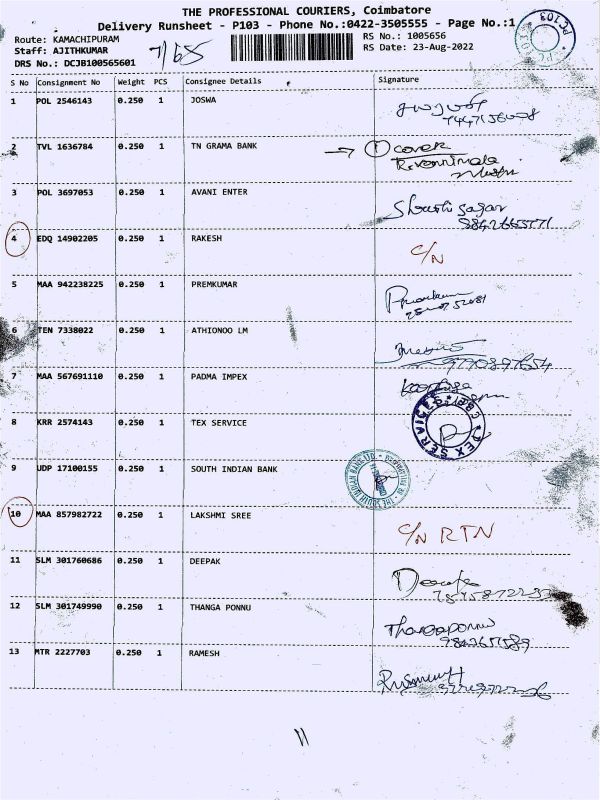 THE PROFESSIONAL COURIERS, Coimbatore
Delivery Runsheet - P103 - Phone No.:0422-3505555 - Page No.:1
Route: KAMACHIPURAM
Staff: AJITHKUMAR 7/65
DRS No.: DCJB100565601
RS No.: 1005656
RS Date: 23-Aug-2022
PC 103
S No Consignment No Weight PCS Consignee Details Signature
1 POL 2546143 0.250 1 JOSWA
2 TVL 1636784 0.250 1 TN GRAMA BANK → 1 cover
3 POL 3697053 0.250 1 AVANI ENTER
4 EDQ 14902205 0.250 1 RAKESH C/N
5 MAA 942238225 0.250 1 PREMKUMAR
6 TEN 7338022 0.250 1 ATHIONOO LM
7 MAA 567691110 0.250 1 PADMA IMPEX
8 KRR 2574143 0.250 1 TEX SERVICE
TEX SERVICES CBE
9 UDP 17100155 0.250 1 SOUTH INDIAN BANK
THE SOUTH INDIAN BANK LTD.
10 MAA 857982722 0.250 1 LAKSHMI SREE C/N RTN
11 SLM 301760686 0.250 1 DEEPAK
12 SLM 301749990 0.250 1 THANGA PONNU Thangaponnu
9842651589
13 MTR 2227703 0.250 1 RAMESH
11